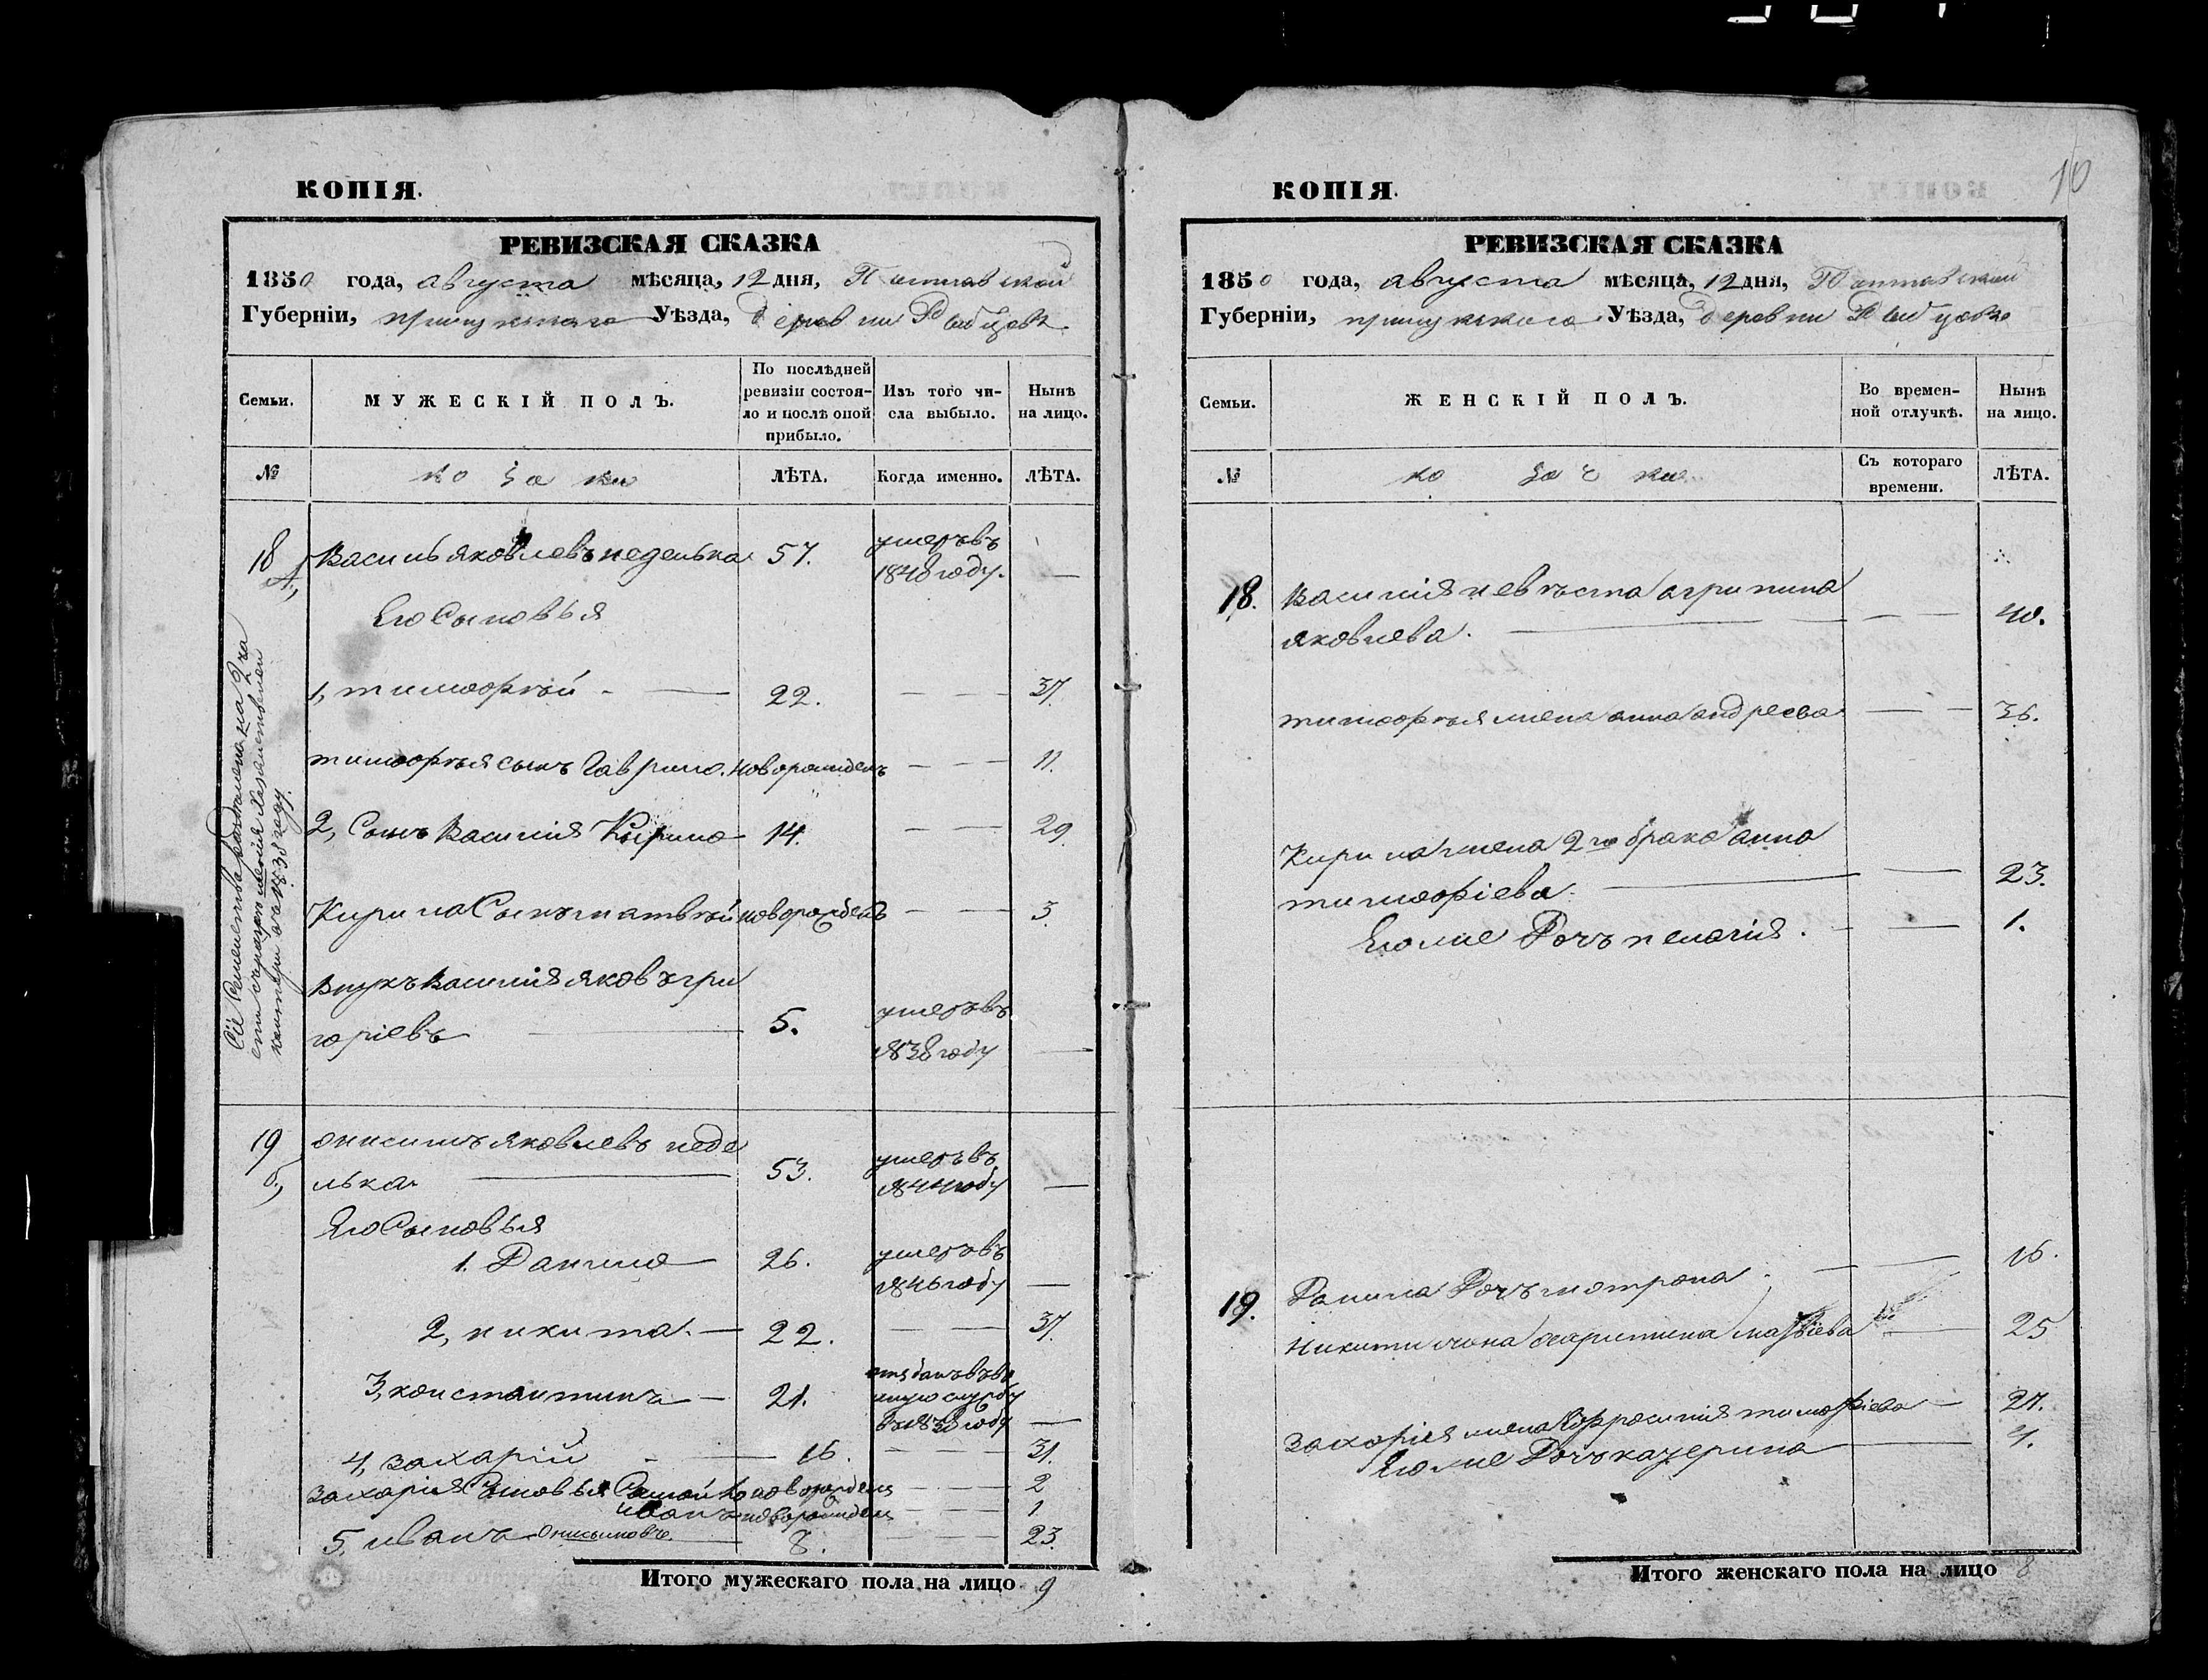 10
КОПІЯ.
РЕВИЗСКАЯ СКАЗКА
1850 года, августа мѣсяца, 12 дня, Полтавской
Губерніи, прилуцкаго Уѣзда, деревни
Семьи.
МУЖЕСКІЙ ПОЛЪ.
По послѣдней
ревизіи состоя-
ло и послѣ оной
прибыло.
Изъ того чи-
сла выбыло.
Нынѣ
на лицо.
№
козаки
ЛѢТА.
Когда именно.
ЛѢТА.
18 Василь яковлевъ неделька 57. умеръ въ
1848 году. —
Его Сыновья
1, тимофѣй — 22. — — 37.
тимофѣя сынъ Гаврило. новорожденъ — — 11.
2, Сынъ Василия Кирило 14. — — 29
Кирила Сынъ матвѣй новорожденъ — — 3.
внукъ Василия яковъ гри
горіевъ — 5. умеръ въ
1838 году —
Сіе Семейство
19 онисимъ яковлевъ неде
лька — 53. умеръ въ
1844 году —
Его Сыновья
1. Данило — 26. умеръ въ
1846 году —
2, никита. — 22. — — 37.
3, константинъ — 21.
службу
году —
4, захарій — 16. — — 31.
захарія Сыновья новорожденъ — — 2
иванъ новорожденъ — — 1
5. иванъ Онисимовъ. — 8. — — 23.
Итого мужескаго пола на лицо 9
КОПІЯ.
РЕВИЗСКАЯ СКАЗКА
1850 года, августа мѣсяца, 12 дня, Полтавской
Губерніи, прилуцкаго Уѣзда, деревни
Семьи.
ЖЕНСКІЙ ПОЛЪ.
Во времен-
ной отлучкѣ.
Нынѣ
на лицо.
№
козачки
Съ котораго
времени.
ЛѢТА.
18. Василия невѣста агрипина
яковлева. — — — 40.
тимофѣя жена анна андреева — — 36.
Кирила жена 2го брака анна
тимофіева. — — 23.
Его же Дочь пелагія. — — 1.
19. Данила Дочь мотрона. — — 16.
Никити жона Харитина матвіева — 25
захарія жена Ефросинія тимофіева — 27.
Его же Дочь катерина — 4.
Итого женскаго пола на лицо 8